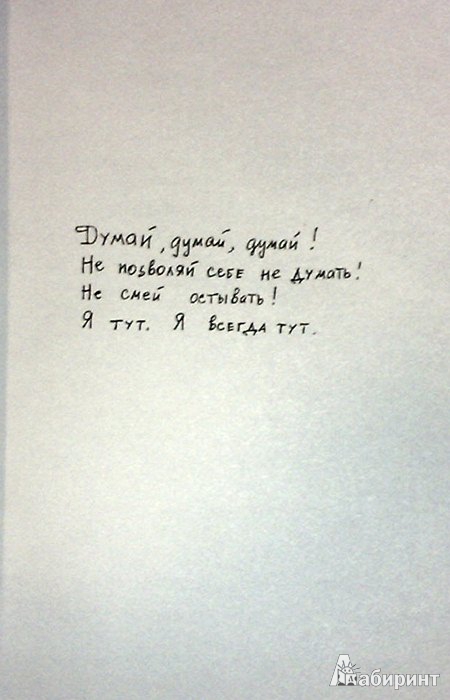 Думай, думай, думай!
Не позволяй себе не думать!
Не смей остывать!
Я тут. Я всегда тут.
Лабиринт